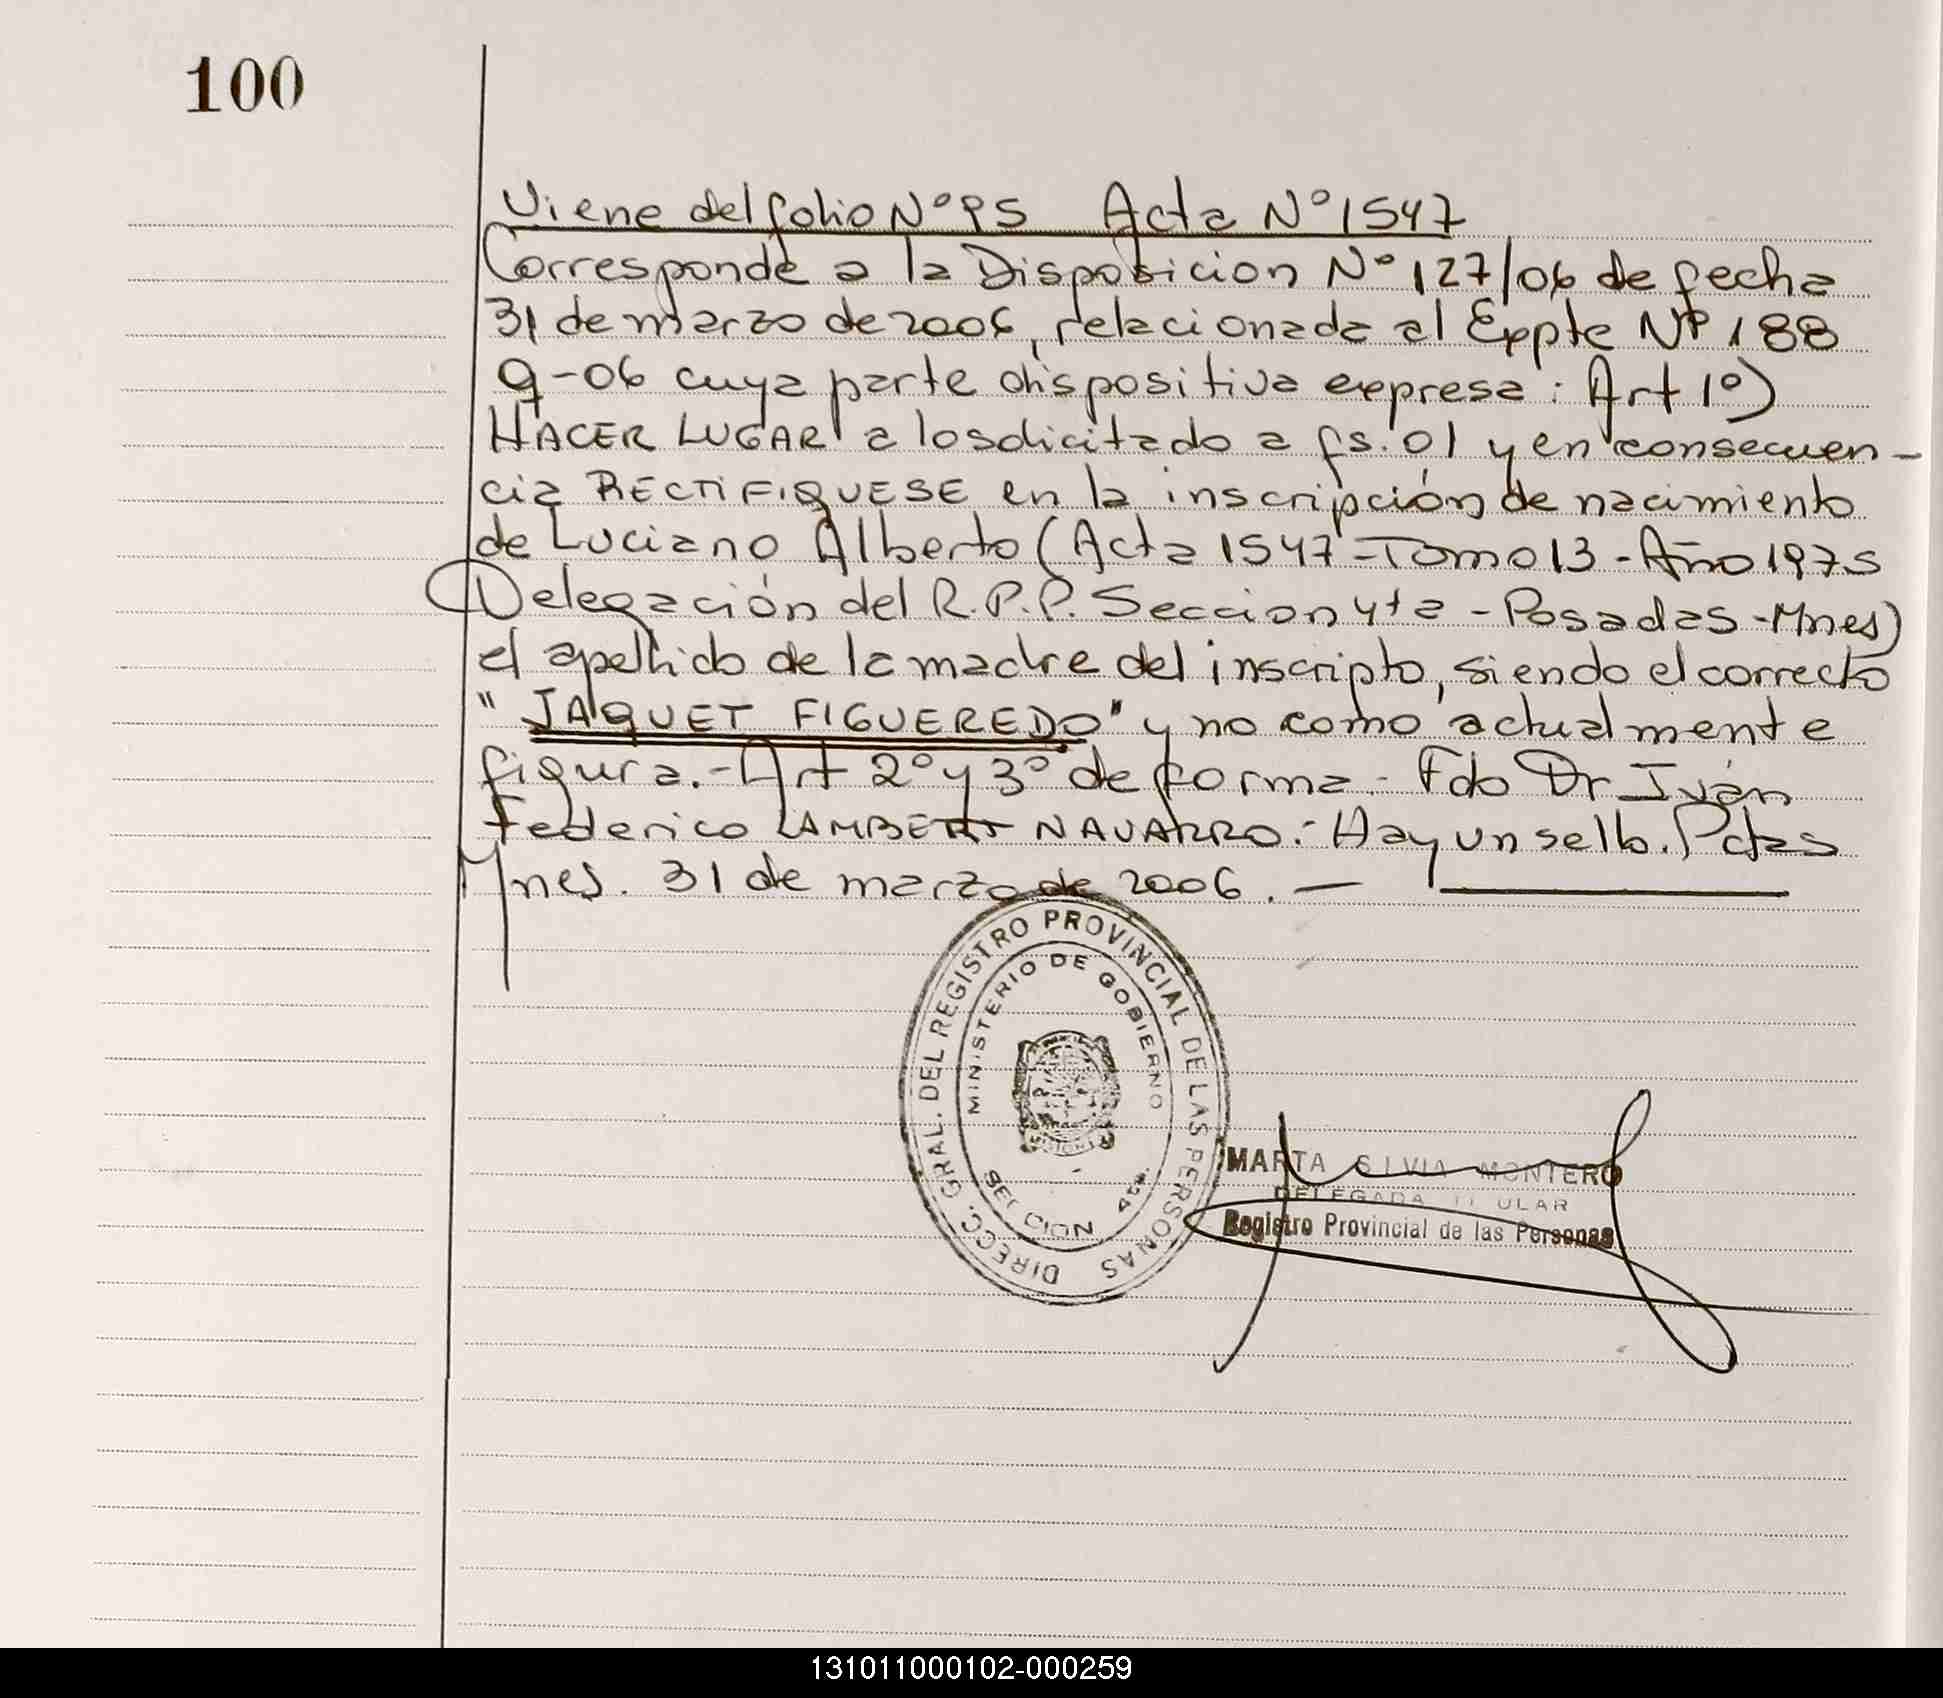 100
Viene del folio N° 95 Acta N° 1547
Corresponde a la Disposicion N° 127/06 de fecha
31 de marzo de 2006, relacionada al Expte N° 188
9-06 cuya parte dispositiva expresa: Art 1°)
HACER LUGAR a lo solicitado a fs. 01 y en consecuen-
cia RECTIFIQUESE en la inscripción de nacimiento
de Luciano Alberto (Acta 1547-Tomo 13-Año 1975
Delegación del R.P.P. Seccion 4ta - Posadas-Mnes)
el apellido de la madre del inscripto, siendo el correcto
"JAQUET FIGUEREDO" y no como actualmente
figura.- Art 2° y 3° de forma.- Fdo Dr Iván
Federico LAMBERT NAVARRO.- Hay un sello. Pdas
Mnes. 31 de marzo de 2006. —
DIRECC. GRAL. DEL REGISTRO PROVINCIAL DE LAS PERSONAS
MINISTERIO DE GOBIERNO
SECCION 4ta.
MARTA SILVIA MONTERO
DELEGADA TITULAR
Registro Provincial de las Personas
131011000102-000259